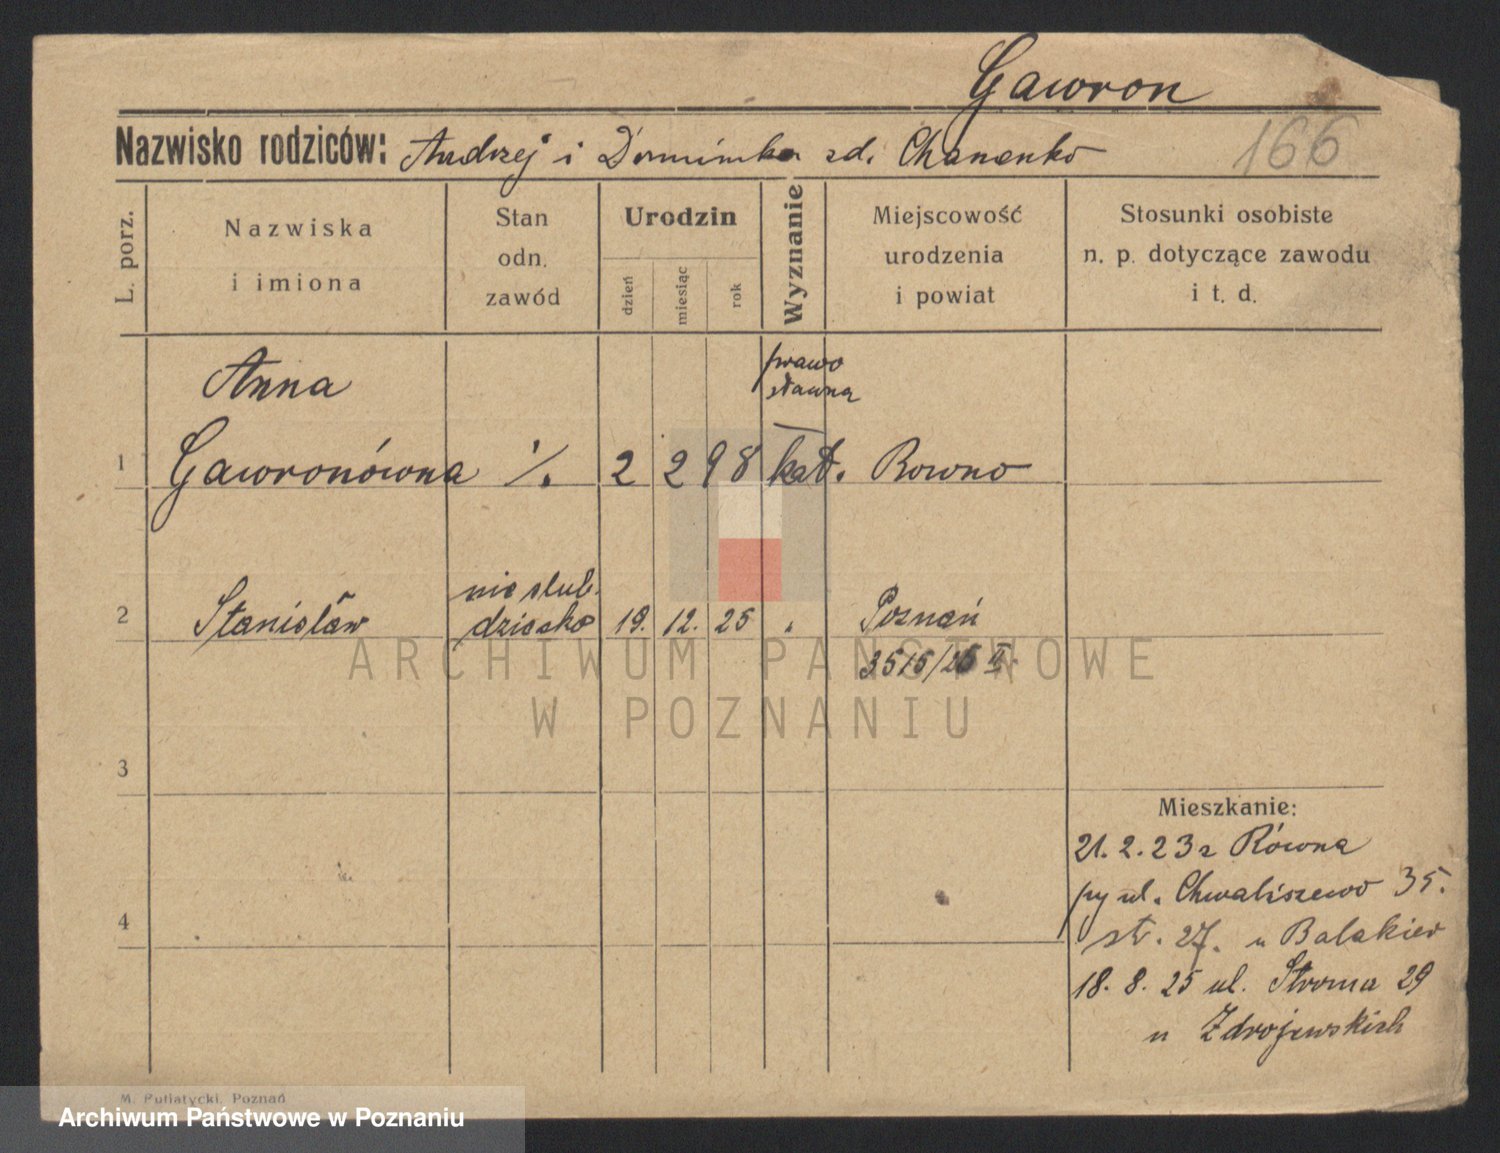 Gawron
Nazwisko rodziców: Andrzej i Dominika zd. Chanenko
166
L. porz.
Nazwiska
i imiona
Stan
odn.
zawód
Urodzin
dzień
miesiąc
rok
Wyznanie
Miejscowość
urodzenia
i powiat
Stosunki osobiste
n. p. dotyczące zawodu
i t. d.
prawo
sławna
Anna
1 Gawronówna 2 2 98 kat. Rowno
nieślub.
2 Stanisław dziecko 19. 12. 25 " Poznań
3515/26 II
ARCHIWUM PAŃSTWOWE
W POZNANIU
3
Mieszkanie:
21. 2. 23 z Równa
py ul. Chwaliszewo 35.
4
st. 27. u Balakier
18. 8. 25 ul. Stroma 29
u Zdrojewskich
M. Putiatycki, Poznań
Archiwum Państwowe w Poznaniu